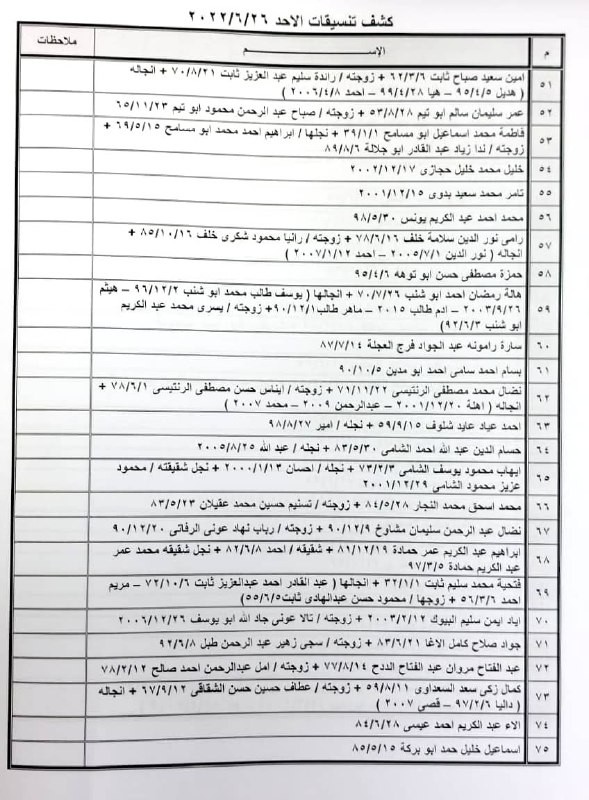 كشف تنسيقات الاحد ٢٠٢٢/٦/٢٦
م الإســـــم ملاحظات
٥١ امين سعيد صباح ثابت ٦٢/٣/٦ + زوجته / رائدة سليم عبد العزيز ثابت ٧٠/٨/٢١ + انجاله
( هديل ٩٥/٤/٥ – هيا ٩٩/٤/٢٨ – احمد ٢٠٠٦/٤/٨ )
٥٢ عمر سليمان سالم ابو تيم ٥٣/٨/٢٨ + زوجته / صباح عبد الرحمن محمود ابو تيم ٦٥/١١/٢٣
٥٣ فاطمة محمد اسماعيل ابو مسامح ٣٩/١/١ + نجلها / ابراهيم احمد محمد ابو مسامح ٦٩/٥/١٥ +
زوجته / ندا زياد عبد القادر ابو جلالة ٨٩/٨/٦
٥٤ خليل محمد خليل حجازى ٢٠٠٢/١٢/١٧
٥٥ تامر محمد سعيد بدوى ٢٠٠١/١٢/١٥
٥٦ محمد احمد عبد الكريم يونس ٩٨/٥/٣٠
٥٧ رامى نور الدين سلامة خلف ٧٨/٦/١٦ + زوجته / رانيا محمود شكرى خلف ٨٥/١٠/١٦ +
انجاله ( نور الدين ٢٠٠٥/٧/١ – احمد ٢٠٠٧/١/١٢ )
٥٨ حمزة مصطفى حسن ابو توهه ٩٥/٤/٦
٥٩ هالة رمضان احمد ابو شنب ٧٠/٧/٢٦ + انجالها ( يوسف طالب محمد ابو شنب ٩٦/١٢/٢ – هيثم
٢٠٠٣/٩/٢٦ – ادم طالب ٢٠١٥ – ماهر طالب ٩٠/١٢/١ + زوجته / يسرى محمد عبد الكريم
ابو شنب ٩٢/٦/٣)
٦٠ سارة رامونه عبد الجواد فرج العجلة ٨٧/٧/١٤
٦١ بسام احمد سامى احمد ابو مدين ٩٠/١٠/٥
٦٢ نضال محمد مصطفى الرنتيسى ٧١/١١/٢٢ + زوجته / ايناس حسن مصطفى الرنتيسى ٧٨/٦/١ +
انجاله ( اهلة ٢٠٠١/١٢/٢٠ – عبدالرحمن ٢٠٠٩ – محمد ٢٠٠٧ )
٦٣ احمد عياد عايد شلوف ٥٩/٩/١٥ + نجله / امير ٩٨/٨/٢٧
٦٤ حسام الدين عبد الله احمد الشامى ٨٣/٥/٣٠ + نجله / عبد الله ٢٠٠٥/٨/٢٥
٦٥ ايهاب محمود يوسف الشامى ٧٣/٢/٣ + نجله / احسان ٢٠٠٠/١/١٣ + نجل شقيقته / محمود
عزيز محمود الشامى ٢٠٠١/١٢/٢٩
٦٦ محمد اسحق محمد النجار ٨٤/٥/٢٨ + زوجته / تسنيم حسين محمد عقيلان ٨٣/٥/٢٣
٦٧ نضال عبد الرحمن سليمان مشاوخ ٩٠/١٢/٩ + زوجته / رباب نهاد عونى الرفاتى ٩٠/١٢/٢٠
٦٨ ابراهيم عبد الكريم عمر حمادة ٨١/١٢/١٩ + شقيقه / احمد ٨٢/٦/٨ + نجل شقيقه محمد عمر
عبد الكريم حمادة ٩٧/٣/٥
٦٩ فتحية محمد سليم ثابت ٣٢/١/١ + انجالها ( عبد القادر احمد عبدالعزيز ثابت ٧٢/١٠/٦ – مريم
احمد ٥٦/٣/٦ + زوجها / محمود حسن عبدالهادى ثابت ٥٥/٦/٥)
٧٠ اياد ايمن سليم البيوك ٢٠٠٣/٢/١٢ + زوجته / تالا عونى جاد الله ابو يوسف ٢٠٠٦/١٢/٢٦
٧١ جواد صلاح كامل الاغا ٨٣/٦/٢١ + زوجته / سجى زهير عبد الرحمن طبل ٩٢/٦/٨
٧٢ عبد الفتاح مروان عبد الفتاح الددح ٧٧/٨/١٤ + زوجته / امل عبدالرحمن احمد صالح ٧٨/٢/١٢
٧٣ كمال زكى سعد السعداوى ٥٩/٨/١١ + زوجته / عطاف حسين حسن الشقاقى ٦٧/٩/١٢ + انجاله
( داليا ٩٧/٢/٦ – قصى ٢٠٠٧ )
٧٤ الاء عبد الكريم احمد عيسى ٨٤/٦/٢٨
٧٥ اسماعيل خليل حمد ابو بركة ٨٥/٥/١٥